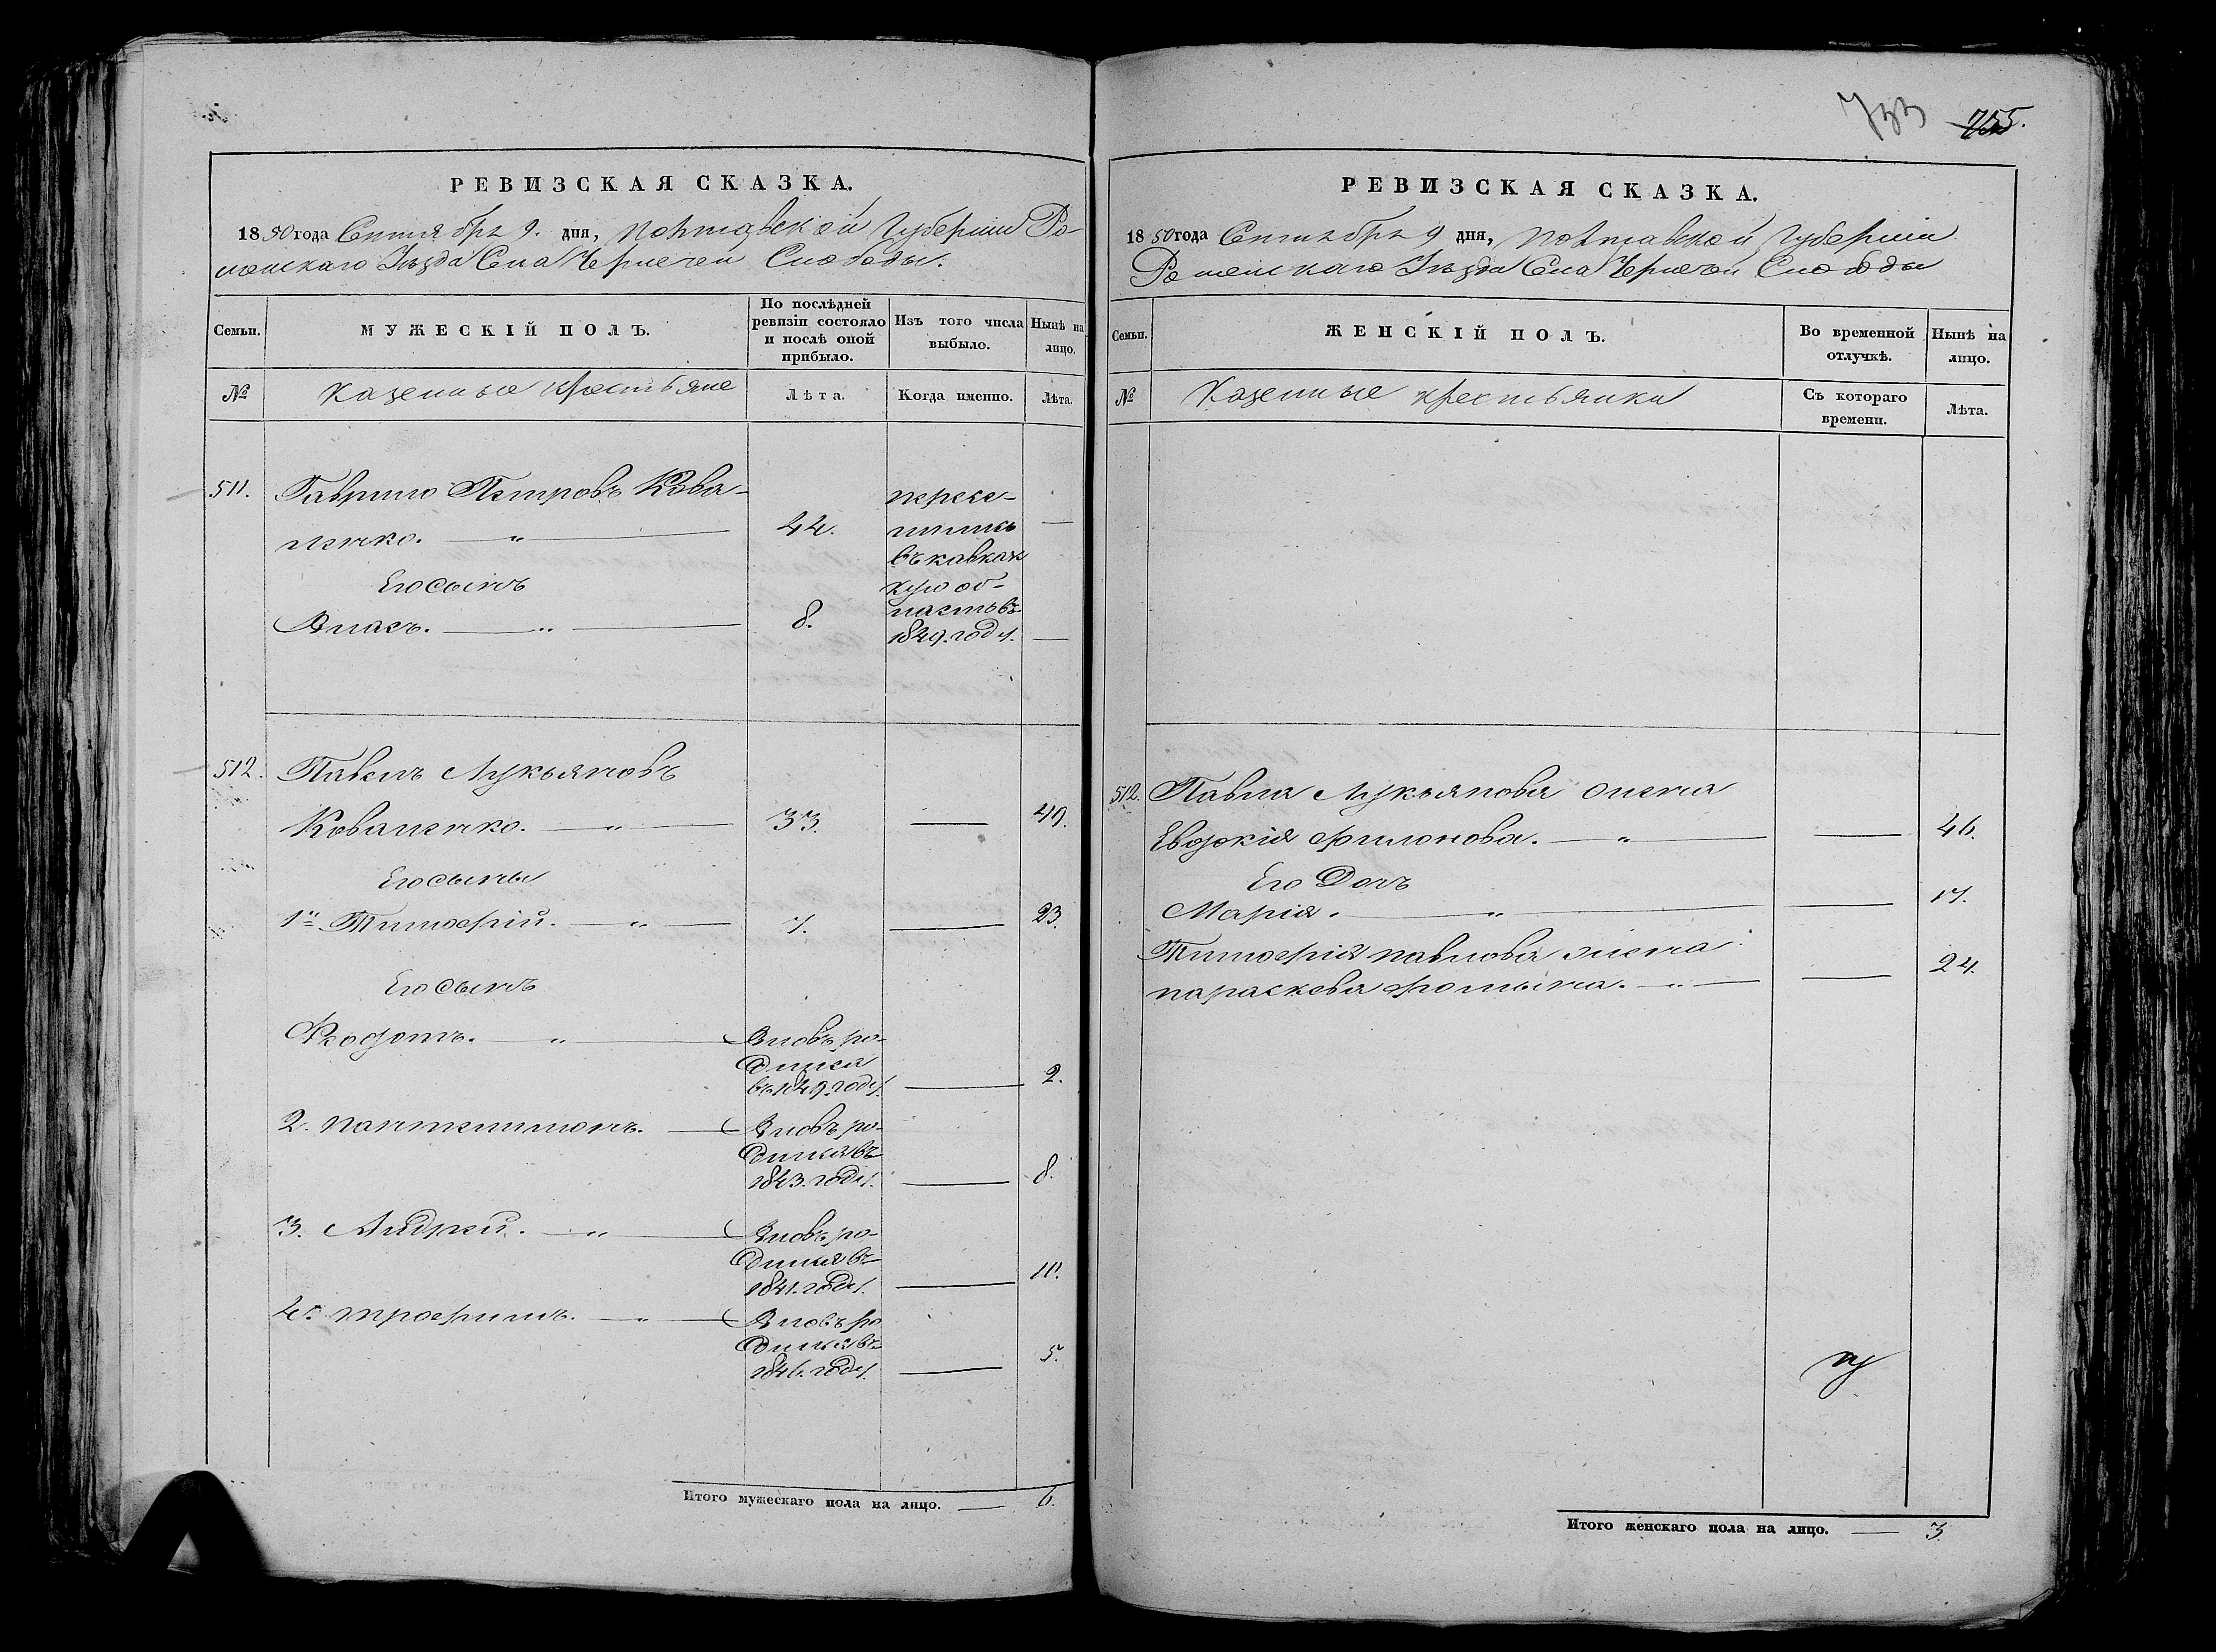 733 755.
РЕВИЗСКАЯ СКАЗКА.
1850 года Сентября 9. дня, Полтавской Губернии Ро-
менскаго Уѣзда Села Чернечей Слободы.
Семьи.
МУЖЕСКІЙ ПОЛЪ.
По послѣдней
ревизіи состояло
и послѣ оной
прибыло.
Изъ того числа
выбыло.
Нынѣ на
лицо.
№
Казенные крестьяне
Лѣта.
Когда именно.
Лѣта.
511. Гаврило Петровъ Кова-
ленко. — „ — 44. —
Его сынъ
Власъ. — „ — 8. —
пересе-
лились
въ кавказ
кую об-
ласть въ
1849. году.
512. Павелъ Лукьяновъ
Коваленко. — „ — 33. — 49.
Его сыны
1й Тимофей. — „ — 7. — 23.
Его сынъ
Федотъ. — „ — Вновь ро-
дился
въ 1849. году. — 2.
2. Пантелимонъ. — Вновь ро-
дился въ
1843. году. — 8.
3. Андрей. — „ — Вновь ро-
дился въ
1841. году. — 11.
4й Трофимъ. — „ — Вновь ро
дился въ
1846. году. — 5.
Итого мужескаго пола на лицо. — 6.
РЕВИЗСКАЯ СКАЗКА.
1850 года Сентября 9 дня, Полтавской Губерніи
Роменскаго Уѣзда Села Чернечей Слободы
Семьи.
ЖЕНСКІЙ ПОЛЪ.
Во временной
отлучкѣ.
Нынѣ на
лицо.
№
Казенные крестьянки
Съ котораго
времени.
Лѣта.
512. Павла Лукьянова жена
Евдокія Филонова. — „ — 46.
Его Дочь
Марія. — „ — 17.
Тимофія Павлова жена
Параскева Фомина. — „ — 24.
Итого женскаго пола на лицо. — 3.